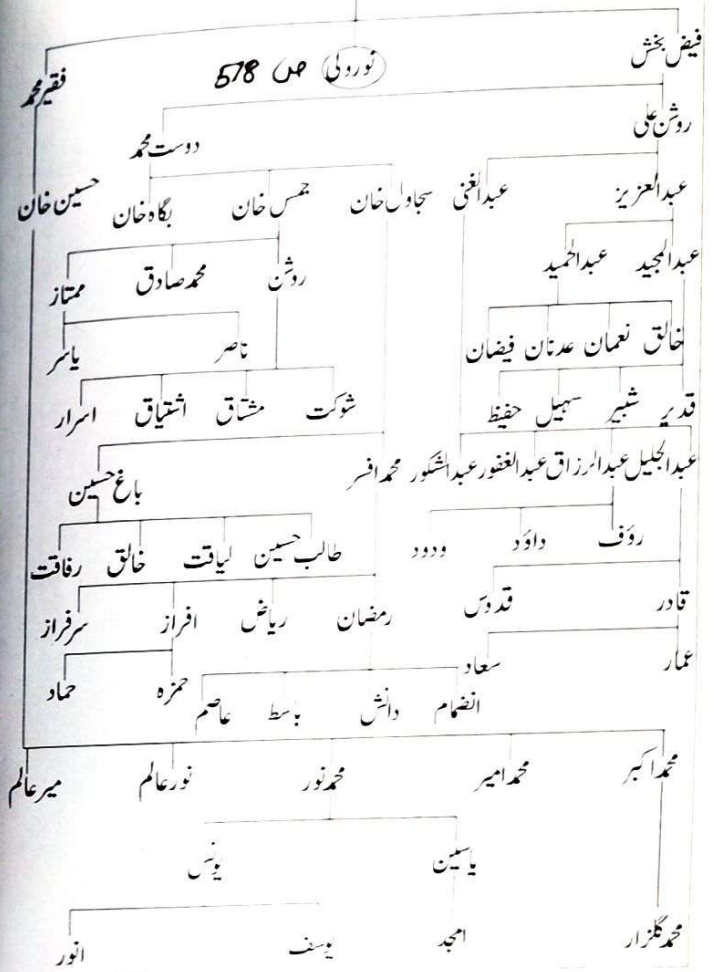 فیض بخش
نورولی ص 578
فقیر محمد
روشن علی
دوست محمد
عبدالعزیز عبدالغنی سجاول خان جمس خان بگاہ خان حسین خان
عبدالمجید عبدالحمید
روشن محمد صادق ممتاز
خالق نعمان عدنان فیضان
ناصر یاسر
قدیر شبیر سہیل حفیظ
شوکت مشتاق اشتیاق اسرار
عبدالجلیل عبدالرزاق عبدالغفور عبدالشکور محمد افسر
باغ حسین
رؤف داؤد ودود
طالب حسین لیاقت خالق رفاقت
قادر قدوس
رمضان ریاض افراز سرفراز
عمار سعاد
حمزہ حماد
انضمام دانش باسط عاصم
محمد اکبر محمد امیر محمد نور نور عالم میر عالم
یاسین یونس
محمد گلزار امجد یوسف انور